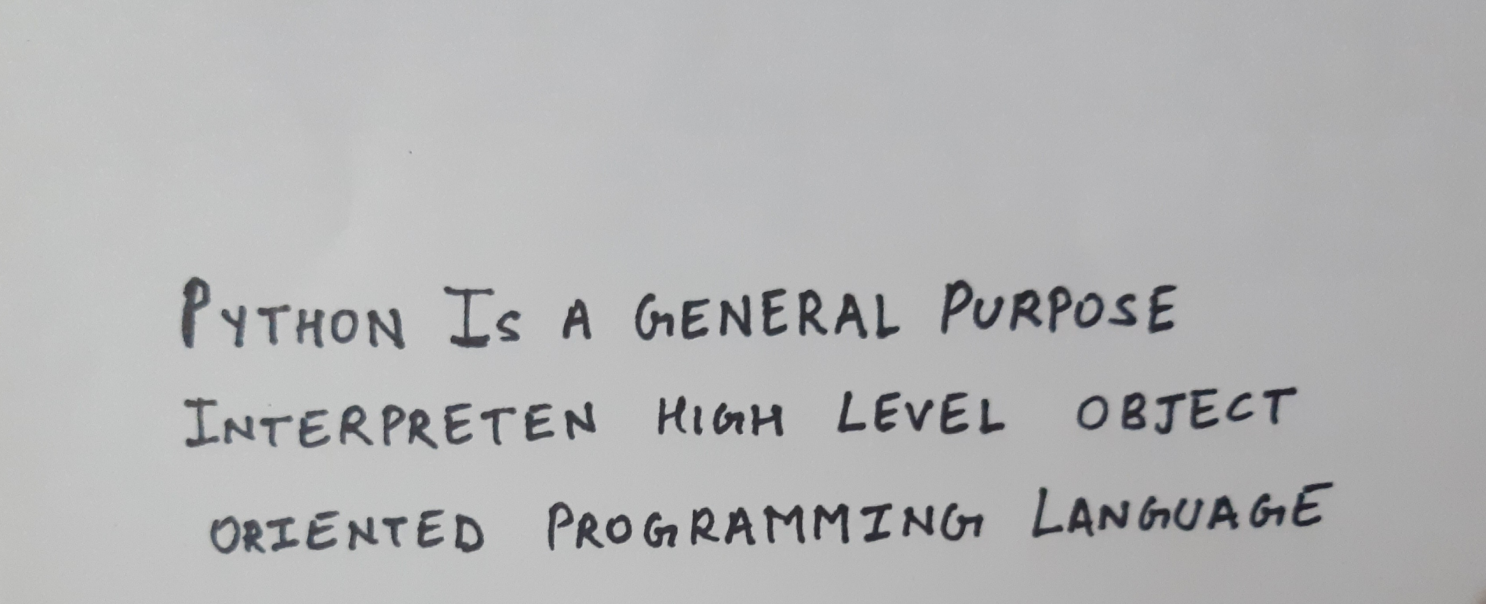 PYTHON IS A GENERAL PURPOSE
INTERPRETEN HIGH LEVEL OBJECT
ORIENTED PROGRAMMING LANGUAGE